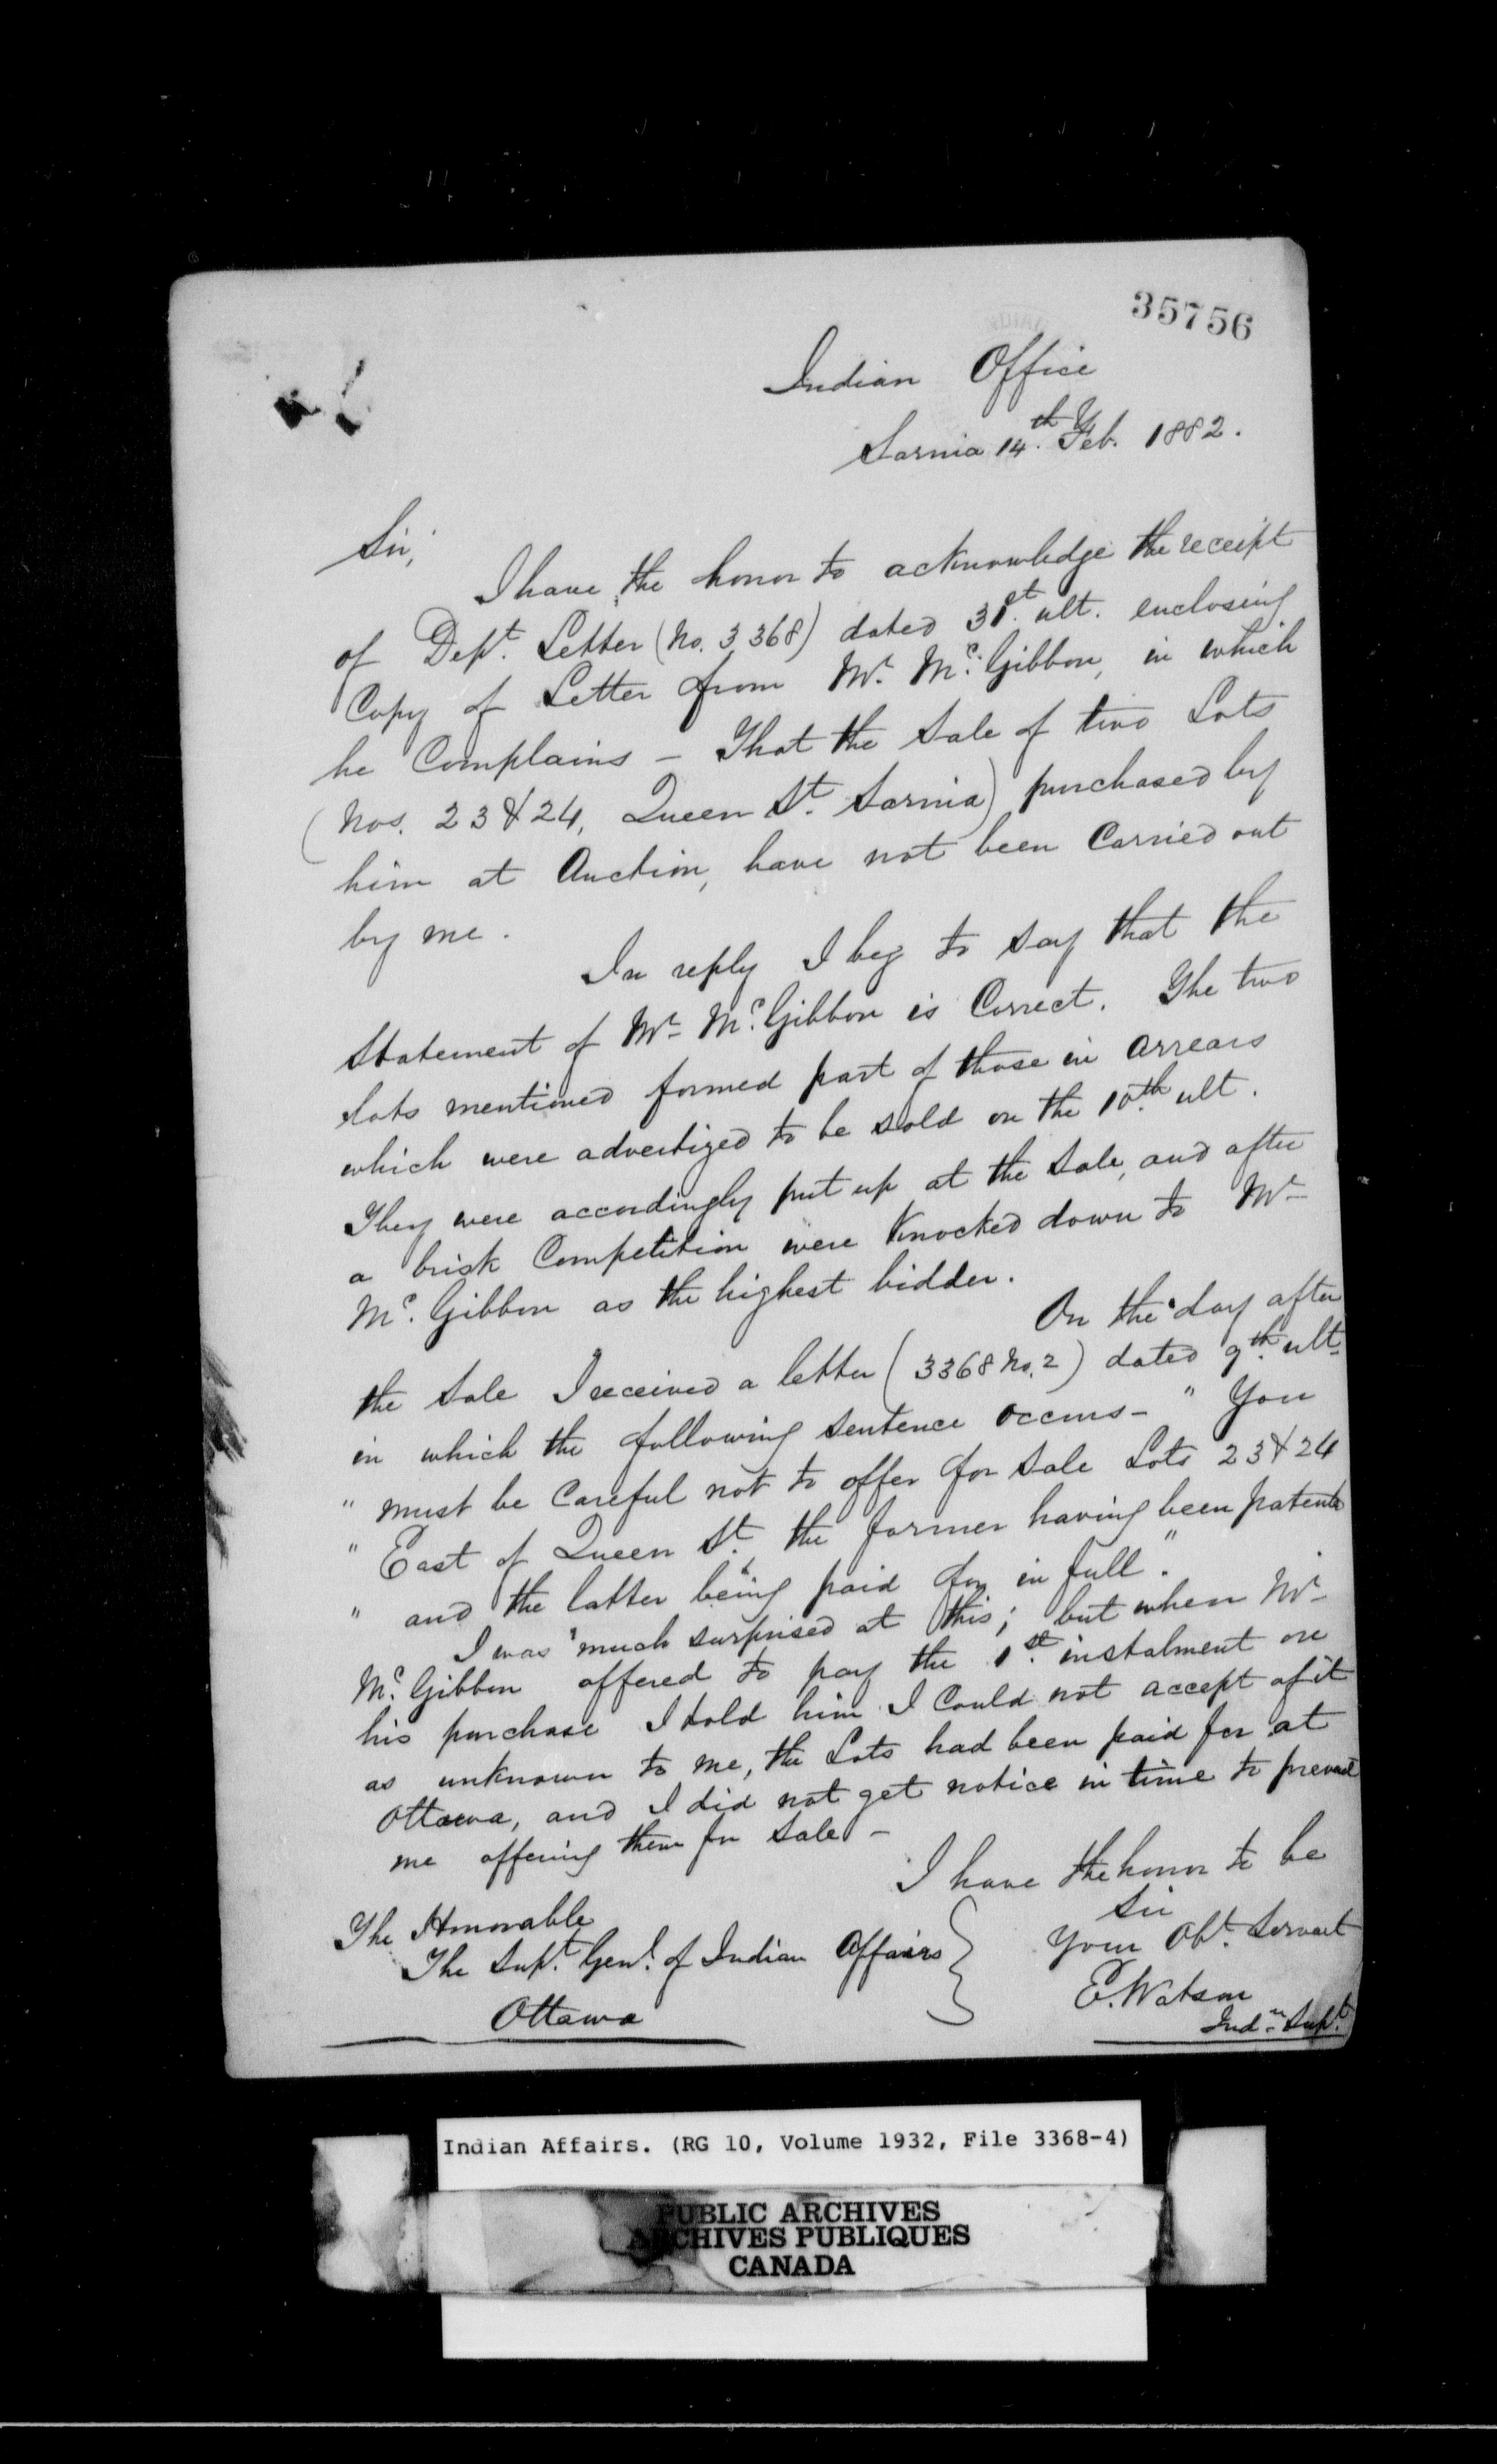 35756
Indian Office
Sarnia 14th Feb. 1882.
Sir,
I have the honor to acknowledge the receipt
of Dept. Letter (No. 3368) dated 31st. ult. enclosing
Copy of Letter from Mr. Mc.Gibbon, in which
he Complains - That the Sale of two Lots
(Nos. 23 & 24, Queen St. Sarnia) purchased by
him at Auction, have not been Carried out
by me.
In reply I beg to say that the
Statement of Mr. Mc.Gibbon is Correct. The two
Lots mentioned formed part of those in arrears
which were advertized to be sold on the 10th. ult.
They were accordingly put up at the Sale, and after
a brisk Competition were Knocked down to Mr
Mc.Gibbon as the highest bidder.
On the day after
the Sale I received a letter (3368 No. 2) dated 9th. ult.
in which the following Sentence occurs - " You
" must be Careful not to offer for Sale Lots 23 & 24
" East of Queen St. the former having been patented
" and the latter being paid for in full."
I was much surprised at this; but when Mr
Mc.Gibbon offered to pay the 1st. instalment on
his purchase I told him I Could not accept of it
as unknown to me, the Lots had been paid for at
Ottawa, and I did not get notice in time to prevent
me offering them for Sale -
I have the honor to be
Sir
Your Obt. Servant
E. Watson
Indn. Supt.
The Honorable
The Supt. Genl. of Indian Affairs
Ottawa
Indian Affairs. (RG 10, Volume 1932, File 3368-4)
PUBLIC ARCHIVES
ARCHIVES PUBLIQUES
CANADA